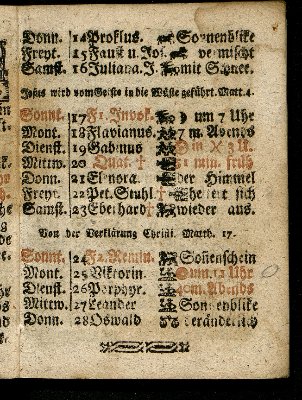 Donn. 14 Proklus. Sonnenblike
Freyt. 15 Faust u. Jov. vermischt
Samst. 16 Juliana. J. mit Schnee.
Jesus wird vom Geiste in die Wüste geführt. Matt. 4.
Sonnt. 17 F1. Invok. um 7 Uhr
Mont. 18 Flavianus. 7 m. Abends
Dienst. 19 Gabinus Din 3 U.
Mittw. 20 Quat. † 21 min. früh
Donn. 21 Eleonora. der Himmel
Freyt. 22 Pet. Stuhl. heitert sich
Samst. 23 Eberhard † wieder aus.
Von der Verklärung Christi. Matth. 17.
Sonnt. 24 F2. Remin. Soñenschein
Mont. 25 Viktorin. 12 Uhr
Dienst. 26 Porphyr. 40 m. Abends
Mittw. 27 Leander Sonnenblike
Donn. 28 Oswald veränderlich